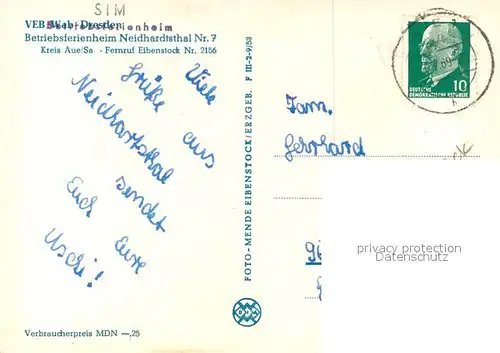 SIM
VEB Wab-Dresden
Betriebsferienheim
Betriebsferienheim Neidhardtsthal Nr. 7
Kreis Aue/Sa. - Fernruf Eibenstock Nr. 2156
Viele
Grüße aus
Neidhartsthal
sendet
Euch Eure
Uschi!
Verbraucherpreis MDN —,25
FOTO-MENDE EIBENSTOCK/ERZGEB. F III-2-9/58
DEUTSCHE
DEMOKRATISCHE REPUBLIK
10
Fam.
Gerhard
privacy protection
oldthing.de